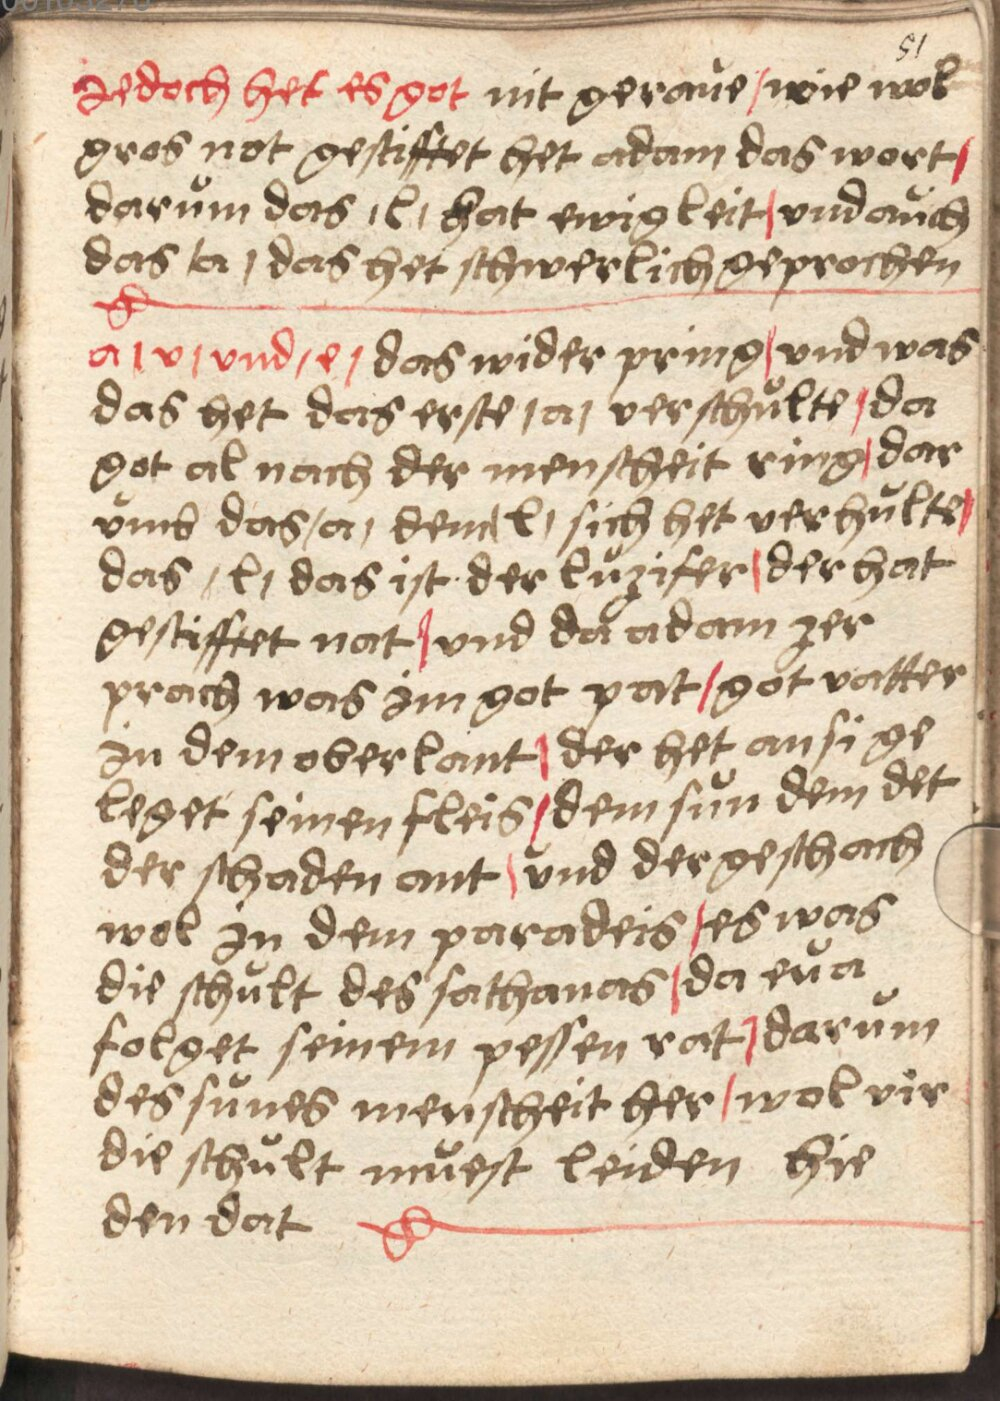 51
Jedoch het es got nit geraue / wie wol
gros not gestifftet het adam das wort /
darům das / l / hat ewigkeit / vnd aůch
das / a / das het schwerlich geprochen
a / v / vnd / e / das wider pring / vnd was
das het das erste / a / verschůlte / da
got al nach der menscheit ring / dar
ůmb das / a / dem / l / sich het verhůlte /
das / l / das ist der lůzifer / der hat
gestifftet nat / vnd da adam zer
prach was im got pat / got vatter
in dem oberlant / der het an si ge
leget seinen fleis / dem sůn dem det
der schaden ant / vnd der geschach
wol in dem paradeis / es was
die schůlt des sathanas / da eůa
folget seinem pessen rat / darům
des sůnes menscheit her / wol vir
die schůlt můest leiden hie
den dat